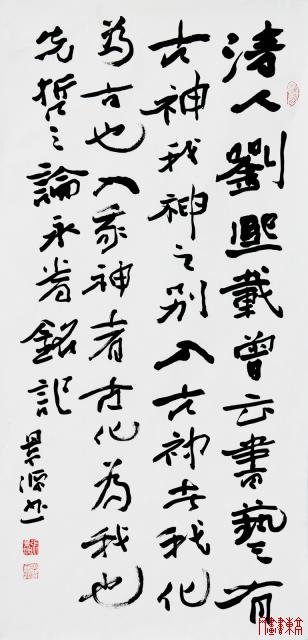 清人劉熙載曾云書藝有
古神我神之别入古神者我化
為古也入我神者古化為我也
先哲之論永當銘記